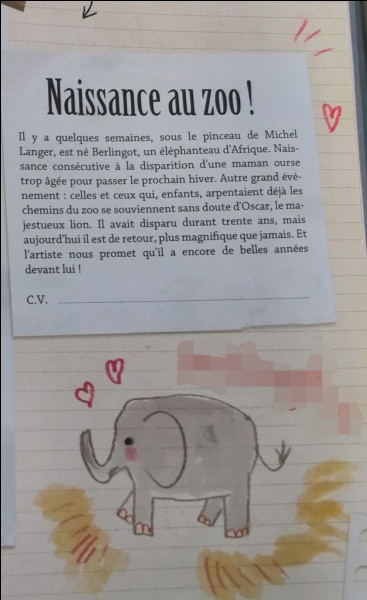 Naissance au zoo !
Il y a quelques semaines, sous le pinceau de Michel
Langer, est né Berlingot, un éléphanteau d'Afrique. Nais-
sance consécutive à la disparition d'une maman ourse
trop âgée pour passer le prochain hiver. Autre grand évé-
nement : celles et ceux qui, enfants, arpentaient déjà les
chemins du zoo se souviennent sans doute d'Oscar, le ma-
jestueux lion. Il avait disparu durant trente ans, mais
aujourd'hui il est de retour, plus magnifique que jamais. Et
l'artiste nous promet qu'il a encore de belles années
devant lui !
C.V.